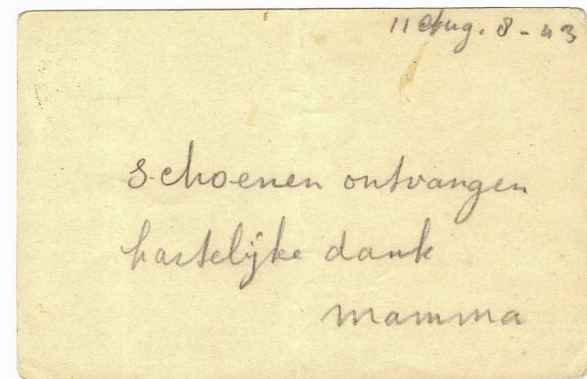 11 Aug. 8-43
schoenen ontvangen
hartelijke dank
mamma